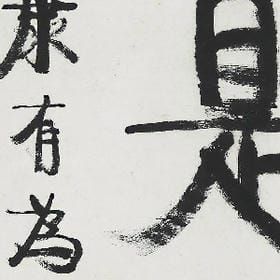 是
康有為